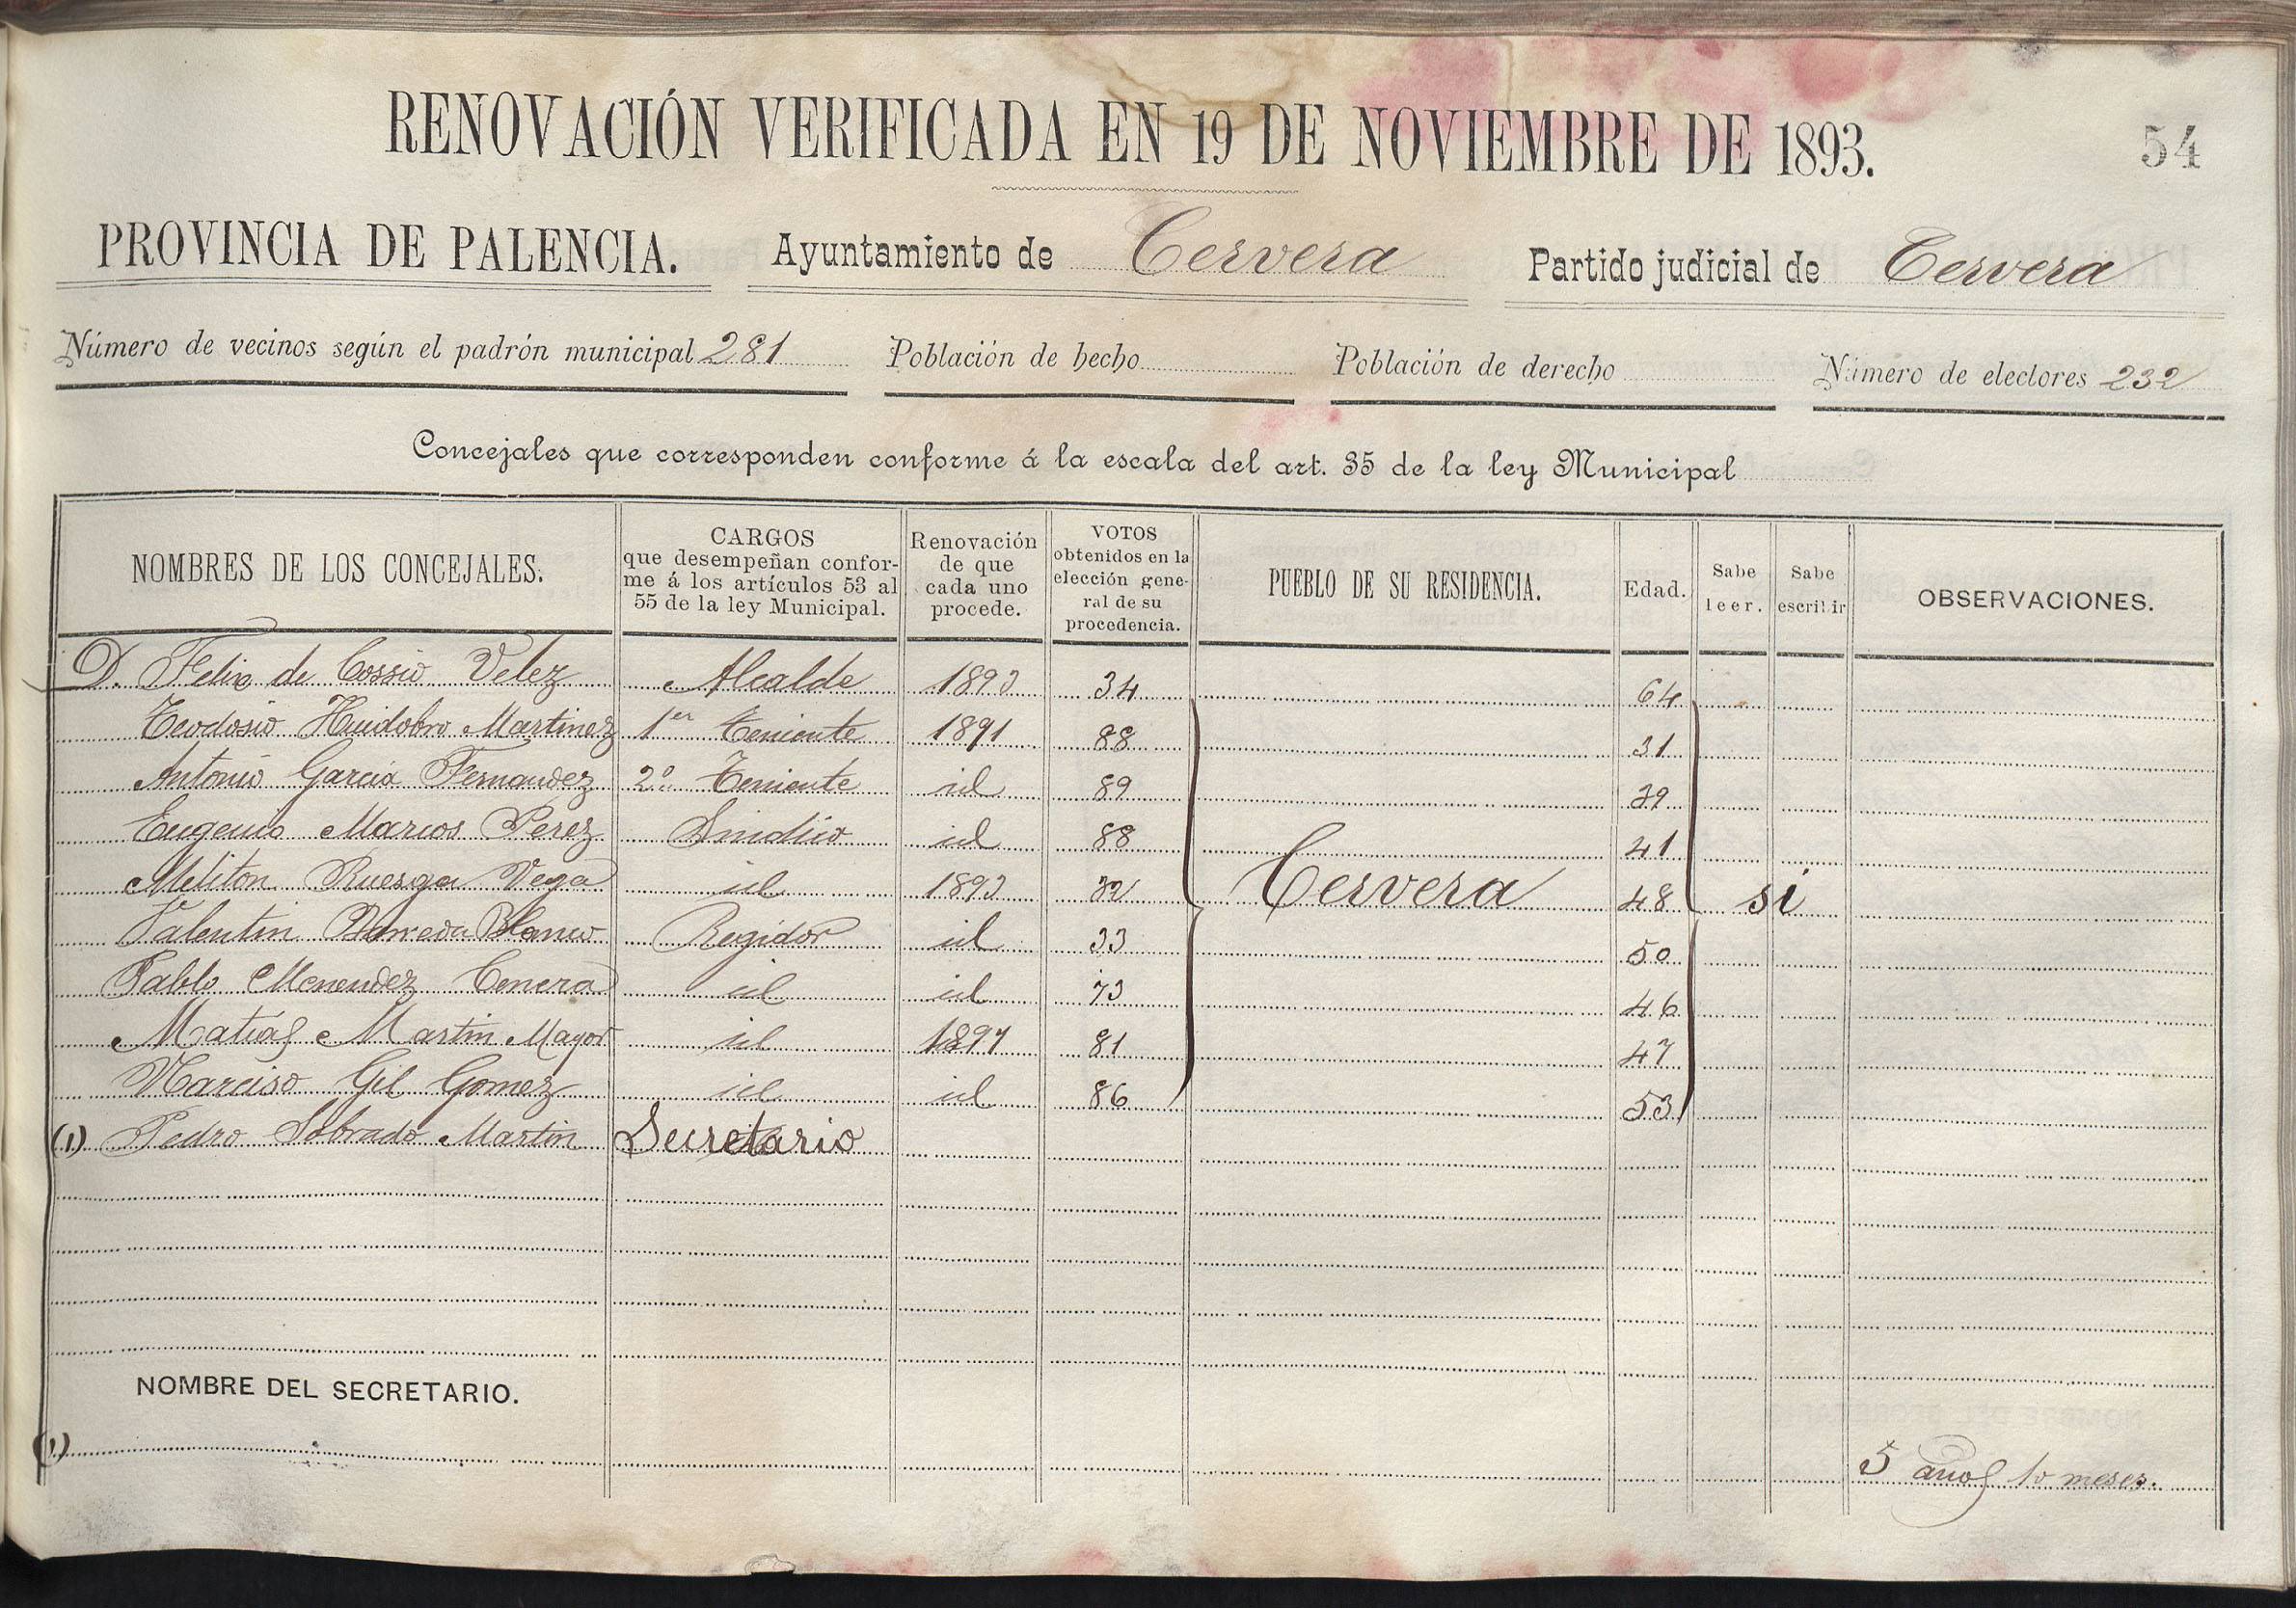 RENOVACIÓN VERIFICADA EN 19 DE NOVIEMBRE DE 1893.
54
PROVINCIA DE PALENCIA. Ayuntamiento de Cervera Partido judicial de Cervera
Número de vecinos según el padrón municipal 281 Población de hecho Población de derecho Número de electores 232
Concejales que corresponden conforme á la escala del art. 35 de la ley Municipal
NOMBRES DE LOS CONCEJALES.
CARGOS
que desempeñan confor-
me á los artículos 53 al
55 de la ley Municipal.
Renovación
de que
cada uno
procede.
VOTOS
obtenidos en la
elección gene-
ral de su
procedencia.
PUEBLO DE SU RESIDENCIA.
Edad.
Sabe
leer.
Sabe
escribir
OBSERVACIONES.
D. Felix de Cossio Velez Alcalde 1893 34 64
Teodosio Huidobro Martinez 1er Teniente 1891 88 31
Antonio García Fernandez 2º Teniente id 89 39
Eugenio Marcos Perez Sindico id 88 41
Meliton Ruesga Vega id 1893 32 Cervera 48 si
Valentin Barreda Blanco Regidor id 33 50
Pablo Menendez id id 73 46
Matias Martin Mayor id 1891 81 47
Narciso Gil Gomez id id 86 53
(1) Pedro Sobrado Martin Secretario
NOMBRE DEL SECRETARIO.
(1)
5 años 10 meses.